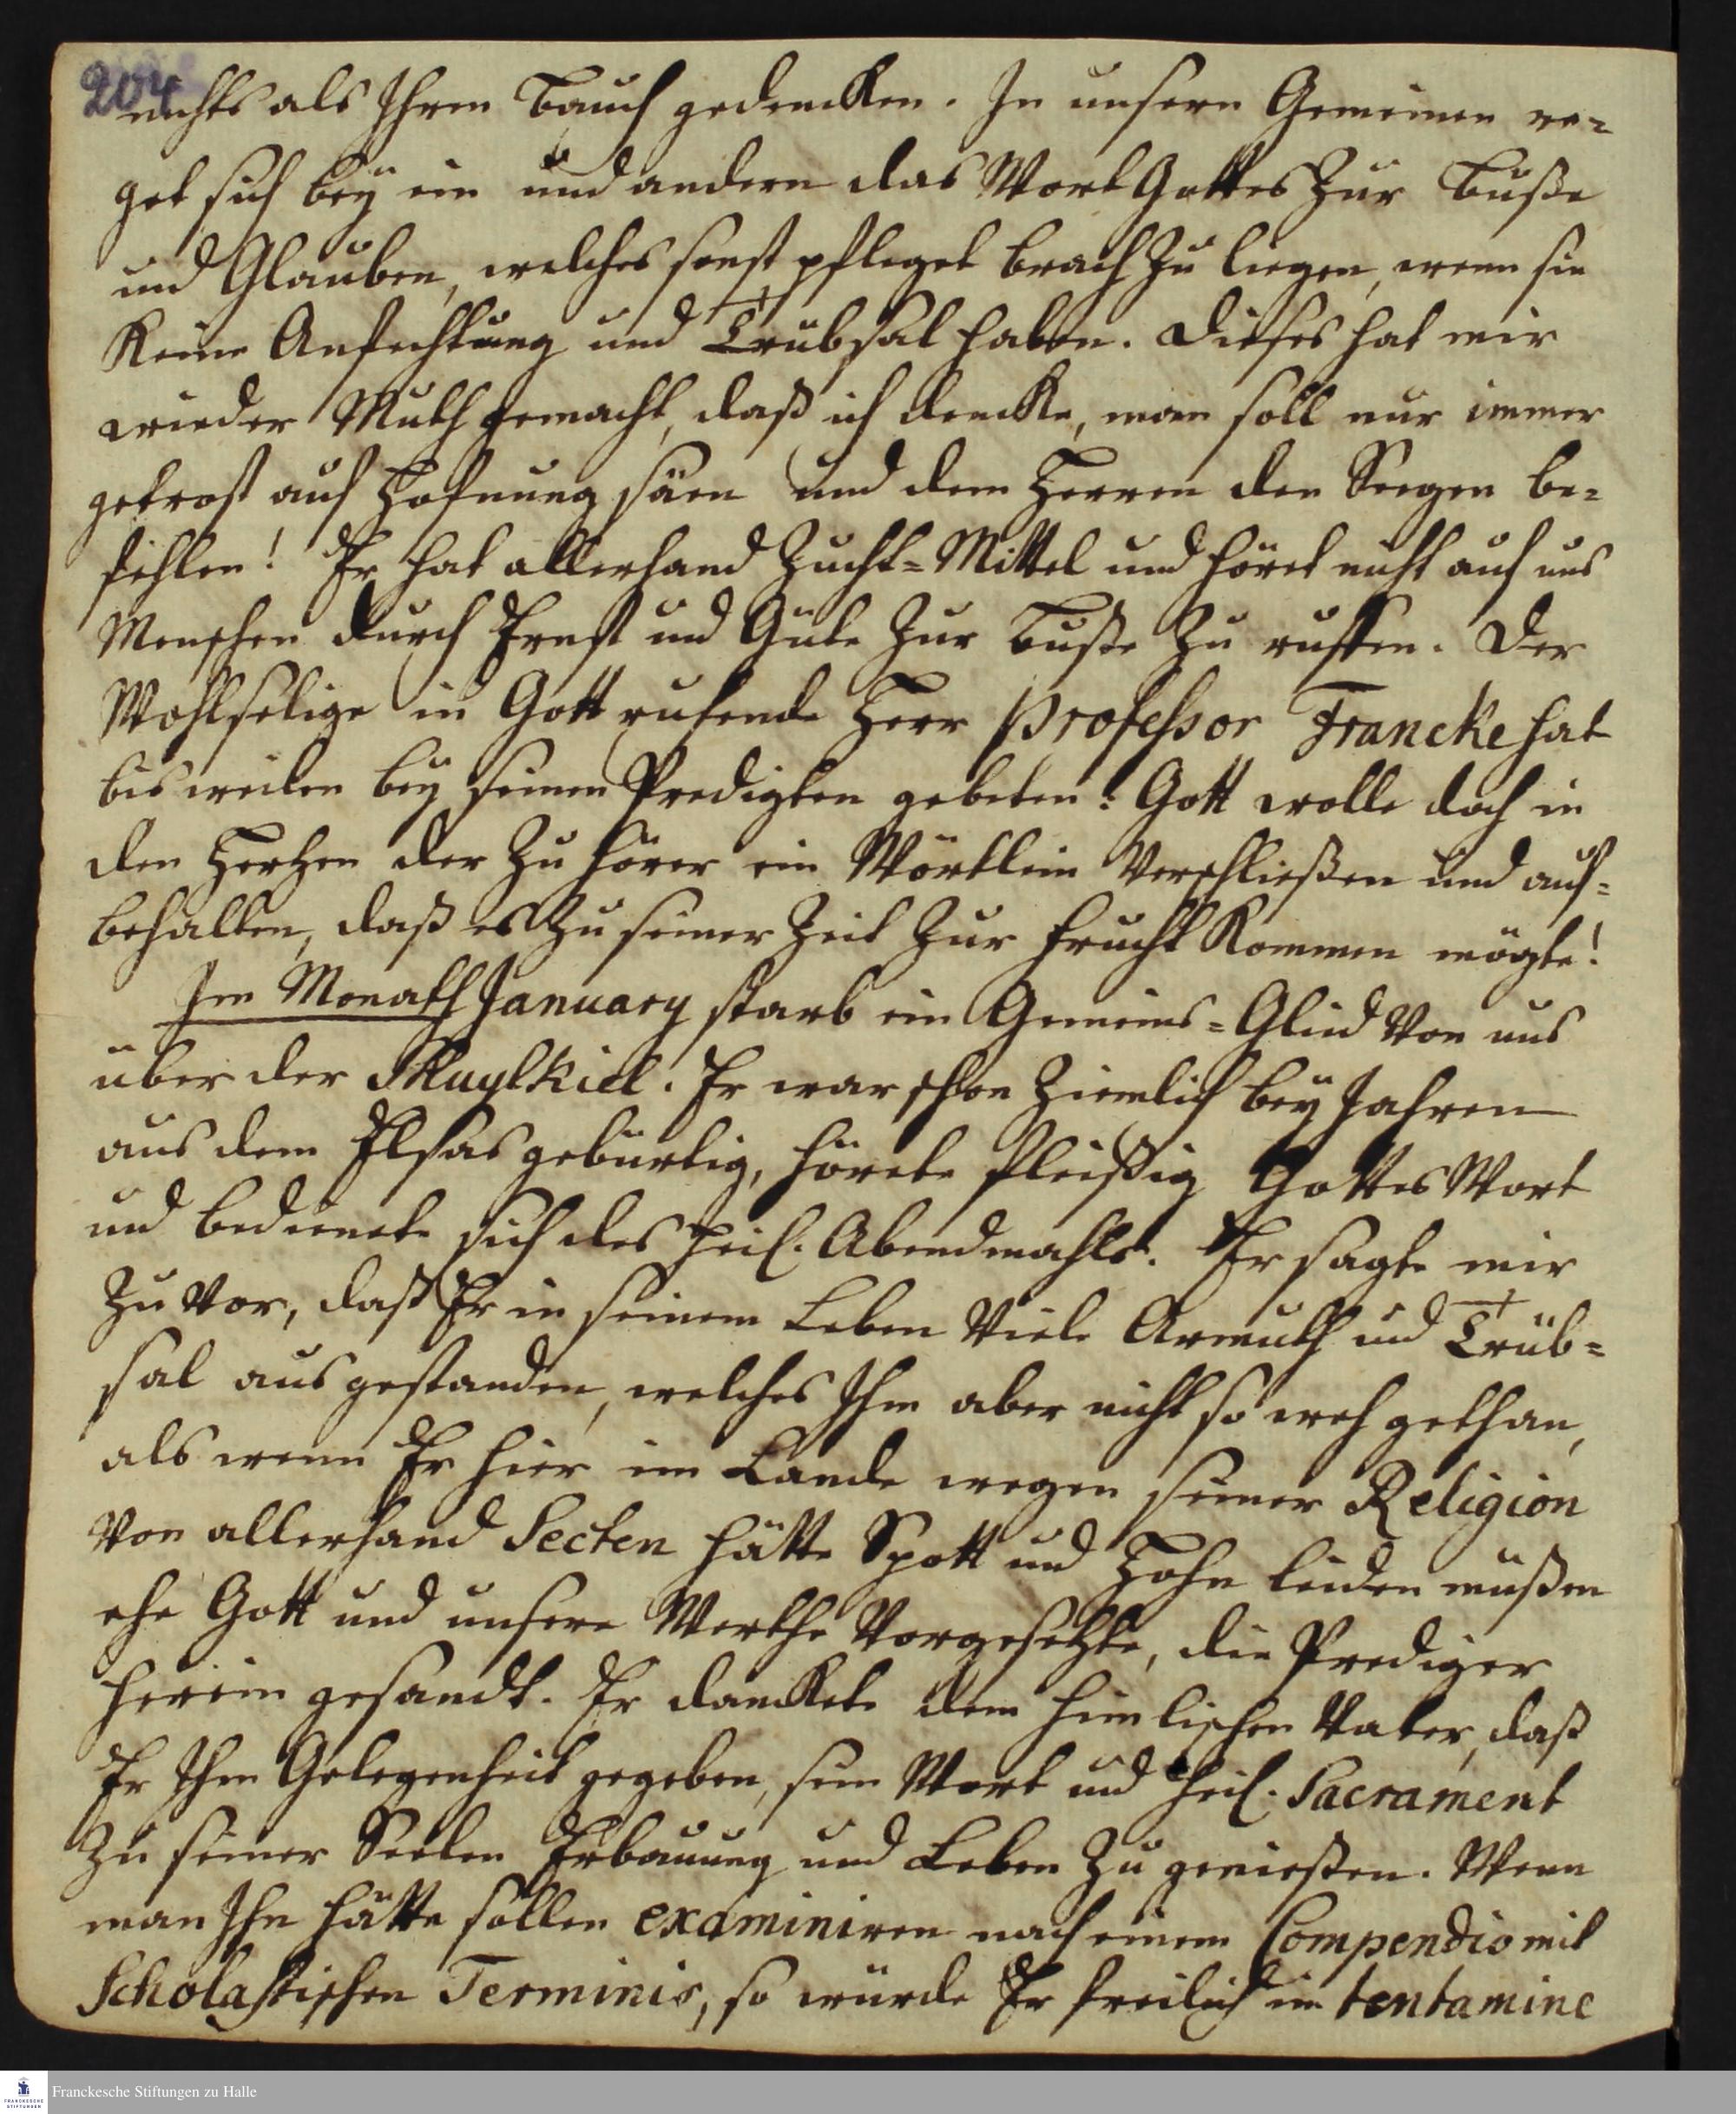 204
nichts als Ihren Bauch gedencken. In unsern Gemeinen re-
get sich bey ein und andern das Wort Gottes zur Buße
und Glauben, welches sonst pfleget brach zu liegen, wenn sie
Keine Anfechtung und Trübsal haben. Dieses hat mir
wieder Muth gemacht, daß ich dencke, man soll nur immer
getrost auf Hofnung säen und dem Herren den Seegen be-
fehlen! Er hat allerhand Zucht-Mittel und höret nicht auf uns
Menschen durch Ernst und Güte zur Buße zu ruffen. Der
Wohlselige in Gott ruhende Herr Professor Francke hat
bisweilen bey seinen Predigten gebeten: Gott wolle doch in
den Hertzen der Zuhörer ein Wörtlein Verschließen und auf-
behalten, daß es zu seiner Zeit zur Frucht Kommen mögte!
Im Monath January starb ein Gemeins-Glied Von uns
über der Skuylkiel. Er war schon Ziemlich bey Jahren
aus dem Elsas gebürtig, hörete fleißig Gottes Wort
und bedienete sich des heil. Abendmahls. Er sagte mir
zu Vor, daß Er in seinem Leben Viele Armuth und Trüb-
sal ausgestanden, welches Ihm aber nicht so weh gethan,
als wenn Er hier im Lande wegen seiner Religion
Von allerhand Secten hätte Spott und Hohn leiden müßen
ehe Gott und unsere Werthe Vorgesetzte, die Prediger
herein gesandt. Er danckete dem himlischen Vater, daß
Er Ihm Gelegenheit gegeben, sein Wort und heil. Sacrament
zu seiner Seelen Erbauung und Leben zu genießen. Wenn
man Ihn hätte sollen examiniren nach einem Compendio mit
Scholastischen Terminis, so würde Er freilich im tentamine
Franckesche Stiftungen zu Halle
FRANCKESCHE
STIFTUNGEN